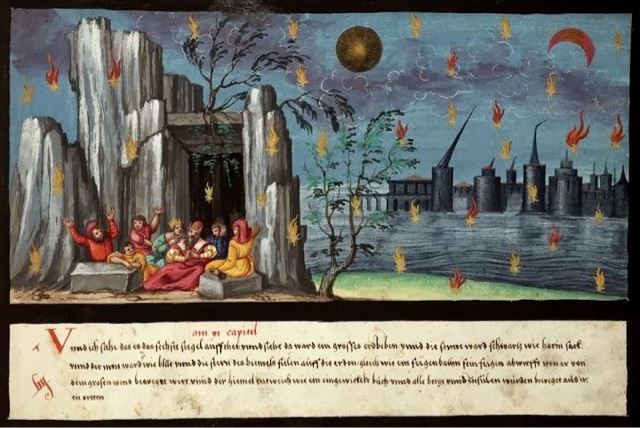 am vi capitel
Vnnd ich sahe das es das sechste siegel auffthet vnnd siehe da ward ein grosses erdbeben vnnd die sonne ward schwartz wie harin sack
vnnd der mon ward wie blut vnnd die stern des hiemels fielen auff die erden gleich wie ein feigenbaum sein feigen abwurfft wen er von
dem grosen wind bewegt wirt vnnd der hiemel entweich wie ein eingewickelt buch vnnd alle berge vnnd insulen wurden beweget aus ir
en orten